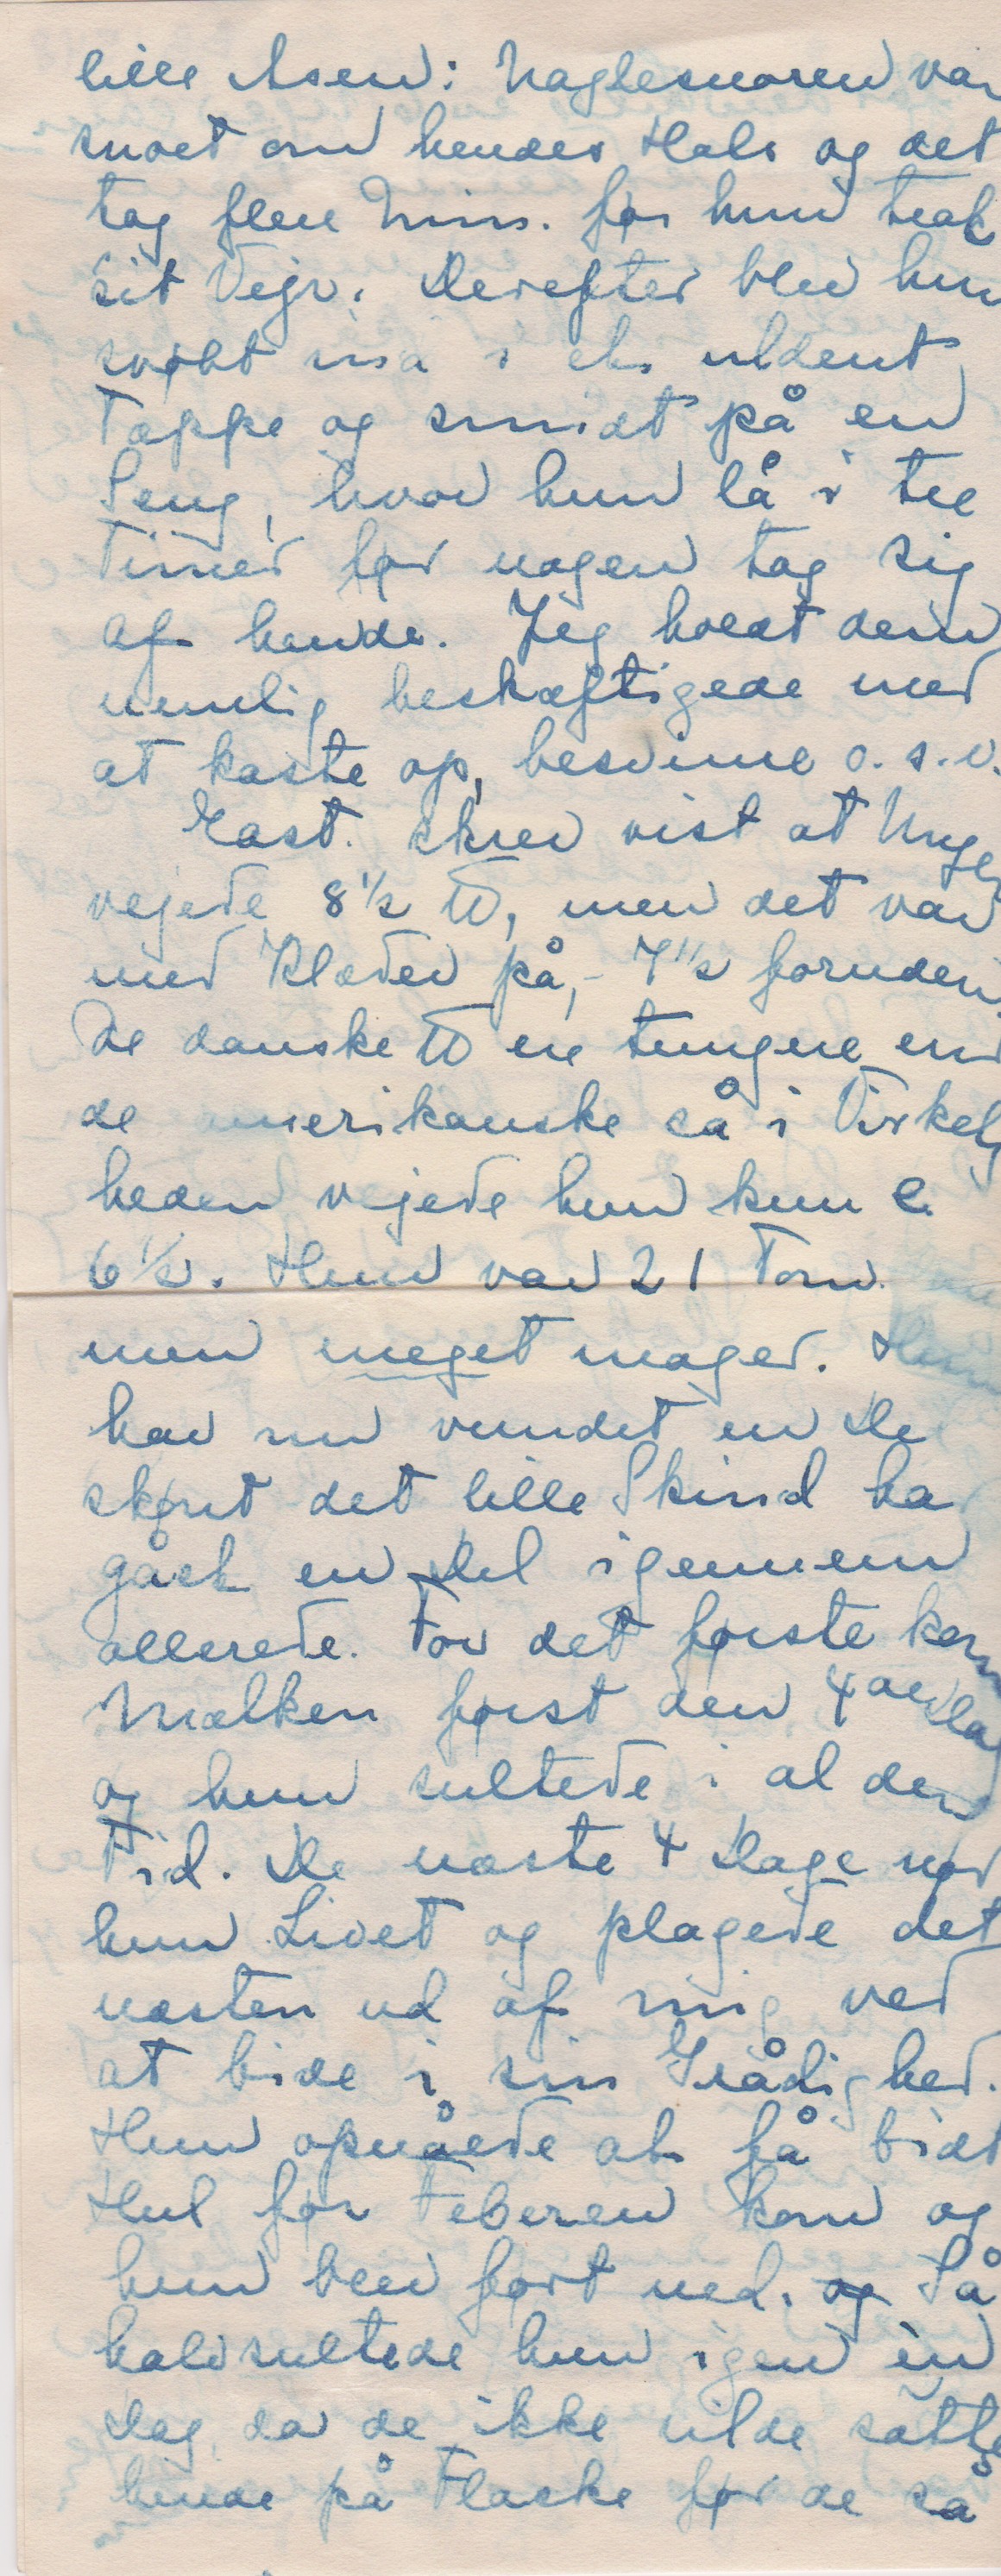 lille Asen: Naglesnoren var
snoet om hendes Hals og det
tog flere Min. før hun trak
sit Vejr. Derefter blev hun
svøbt ind i et uldent
Tæppe og smidt på en
Seng, hvor hun lå i tre
Timer før nogen tog sig
af hende. Jeg holdt dem
nemlig beskæftigede med
at kaste op, besvime o.s.v.
skrev vist at
vejede 8½ ℔, men det var
med Klæder på, - 7½ foruden.
De danske ℔ ere tungere end
de amerikanske så i Virkelig
heden vejede hun kun
6½. Hun var 21 Tom.
men meget mager. Hun
har nu vundet en De
skønt det lille Skind ha
gået en Del igennem
allerede. For det første kom
Mælken først den 4de Dag
og hun sultede i al den
Tid. De næste 4 Dage nød
hun Livet og plagede det
næsten ud af mig ved
at bide i sin Grådighed.
Hun opnåede at få bidt
Hul før Feberen kom og
hun blev ført ned. og Så
halvsultede hun igen èn
Dag da de ikke vilde sætte
hende på Flaske før de så